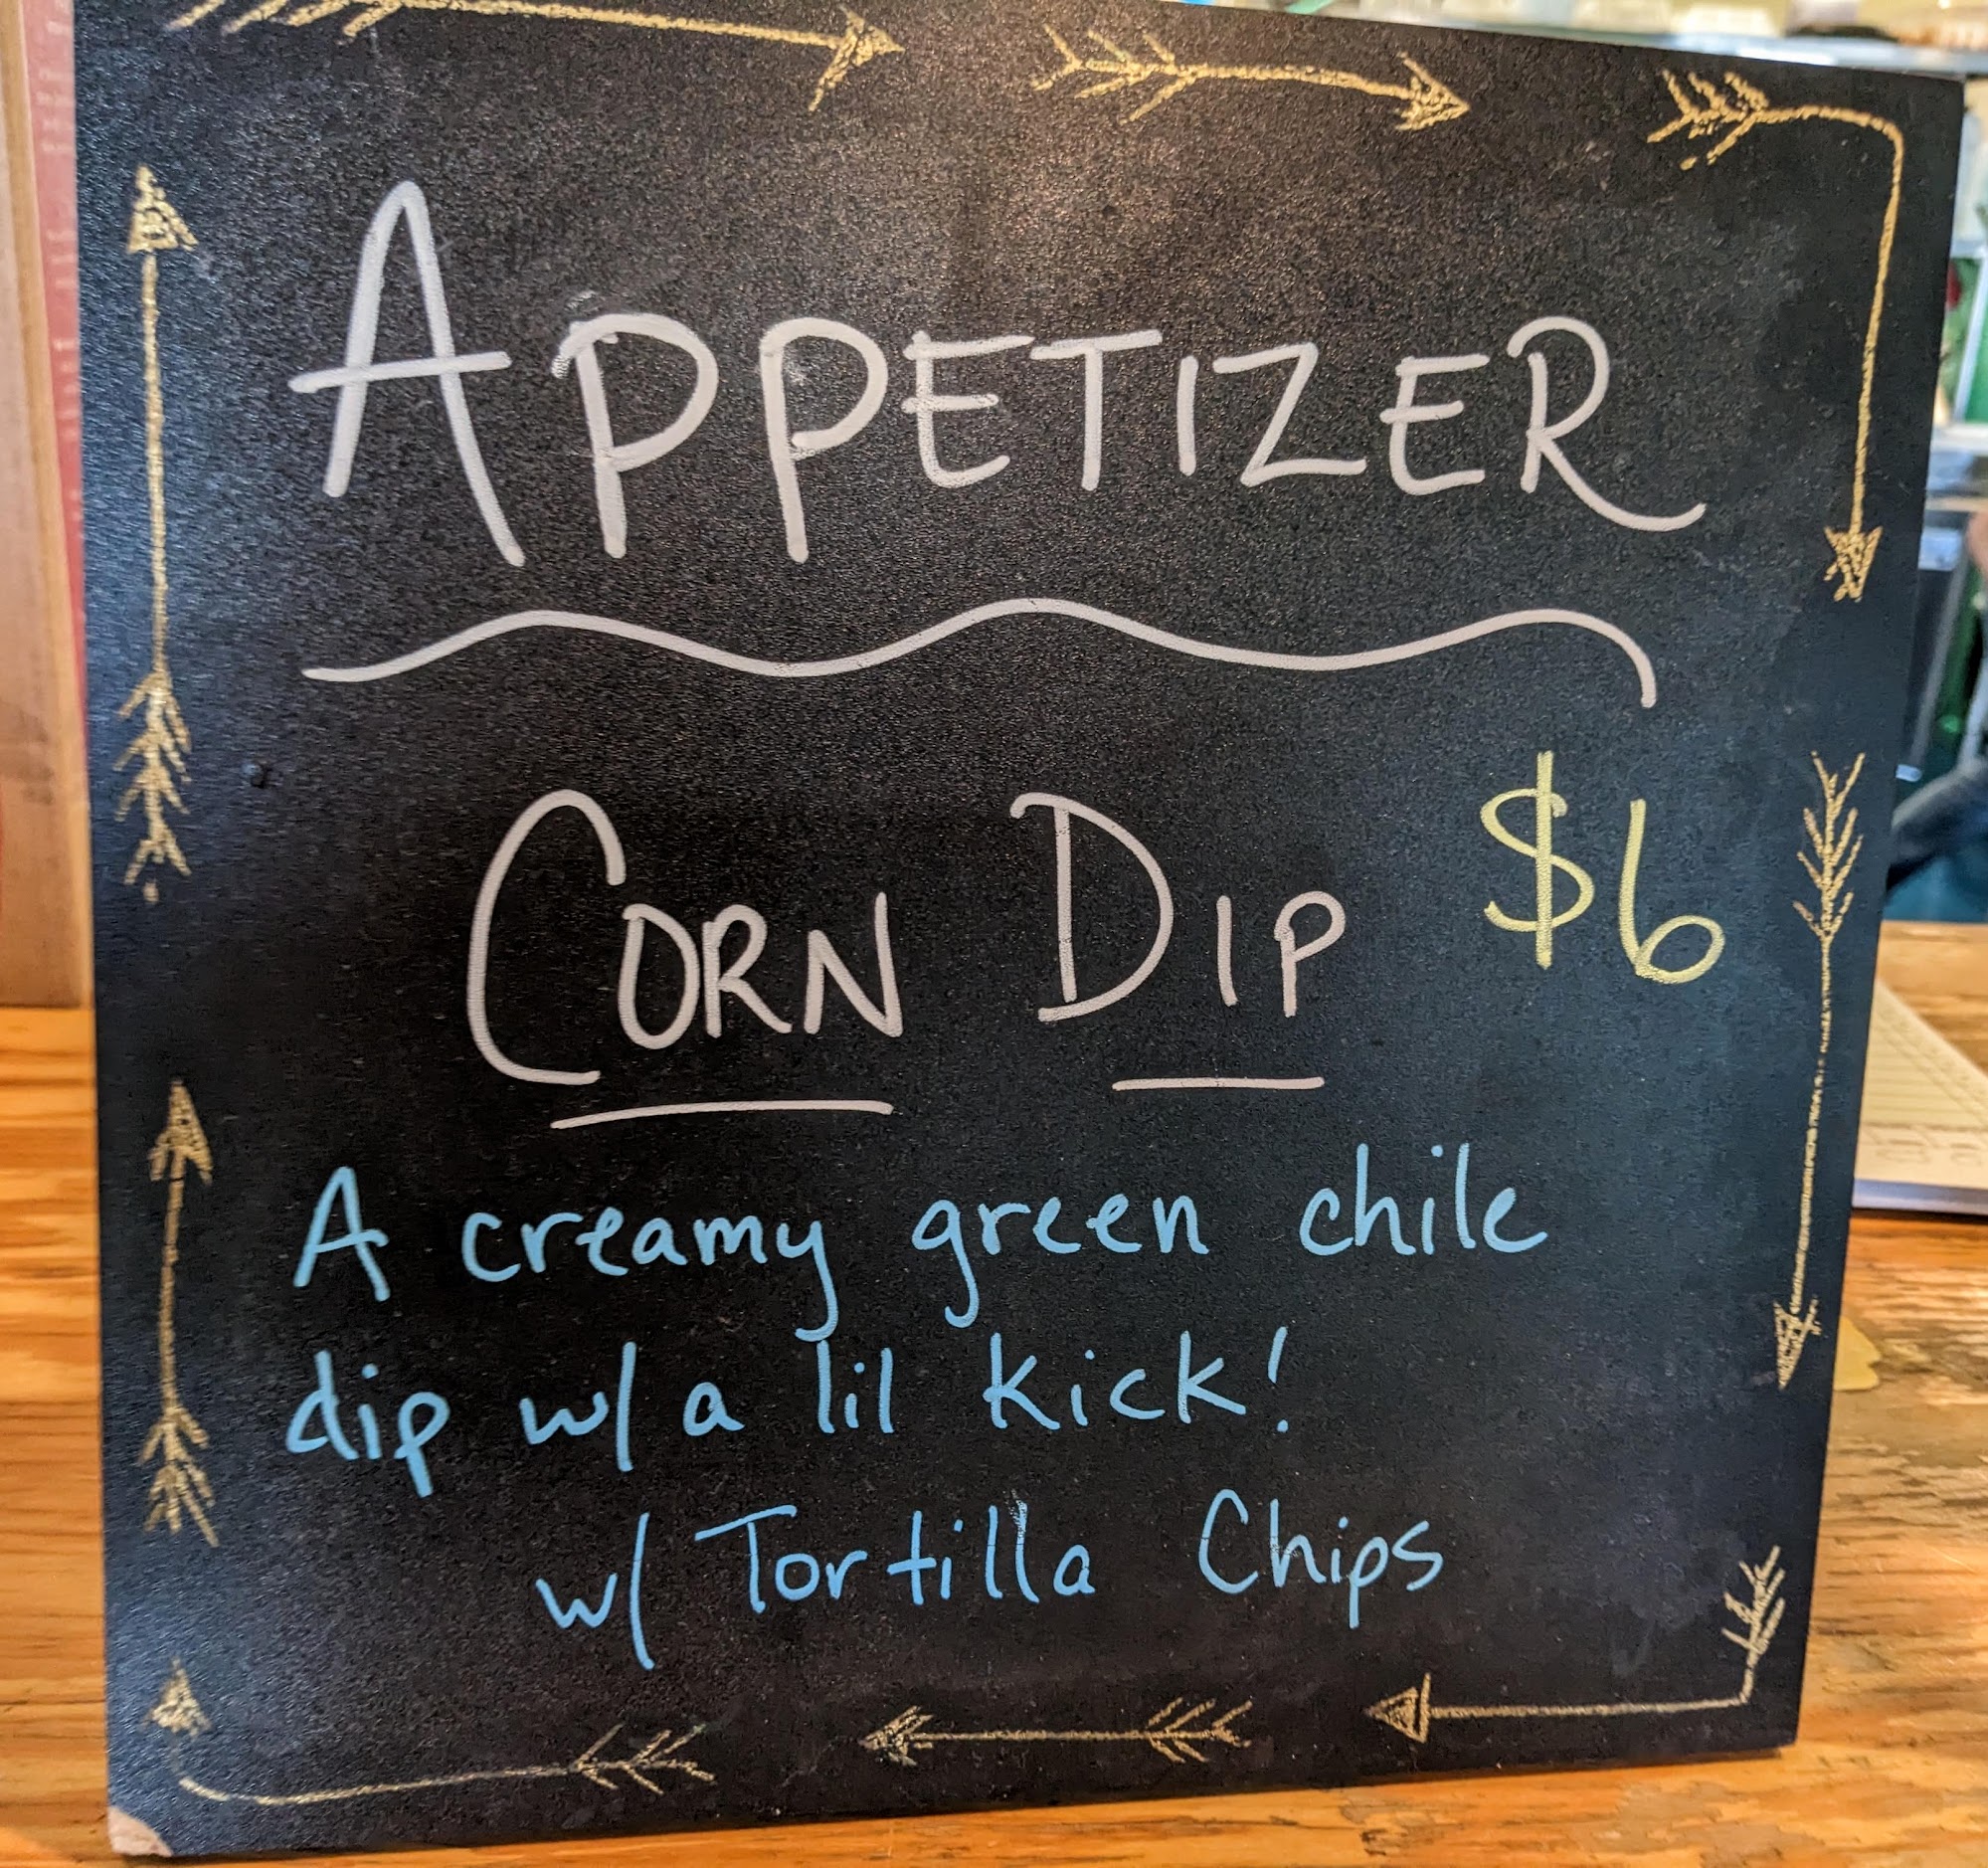 APPETIZER
CORN DIP $6
A creamy green chile
dip w/ a lil kick!
w/ Tortilla Chips